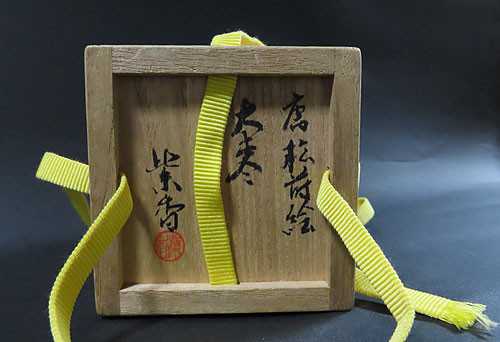 唐松蒔絵
大棗
紫雪